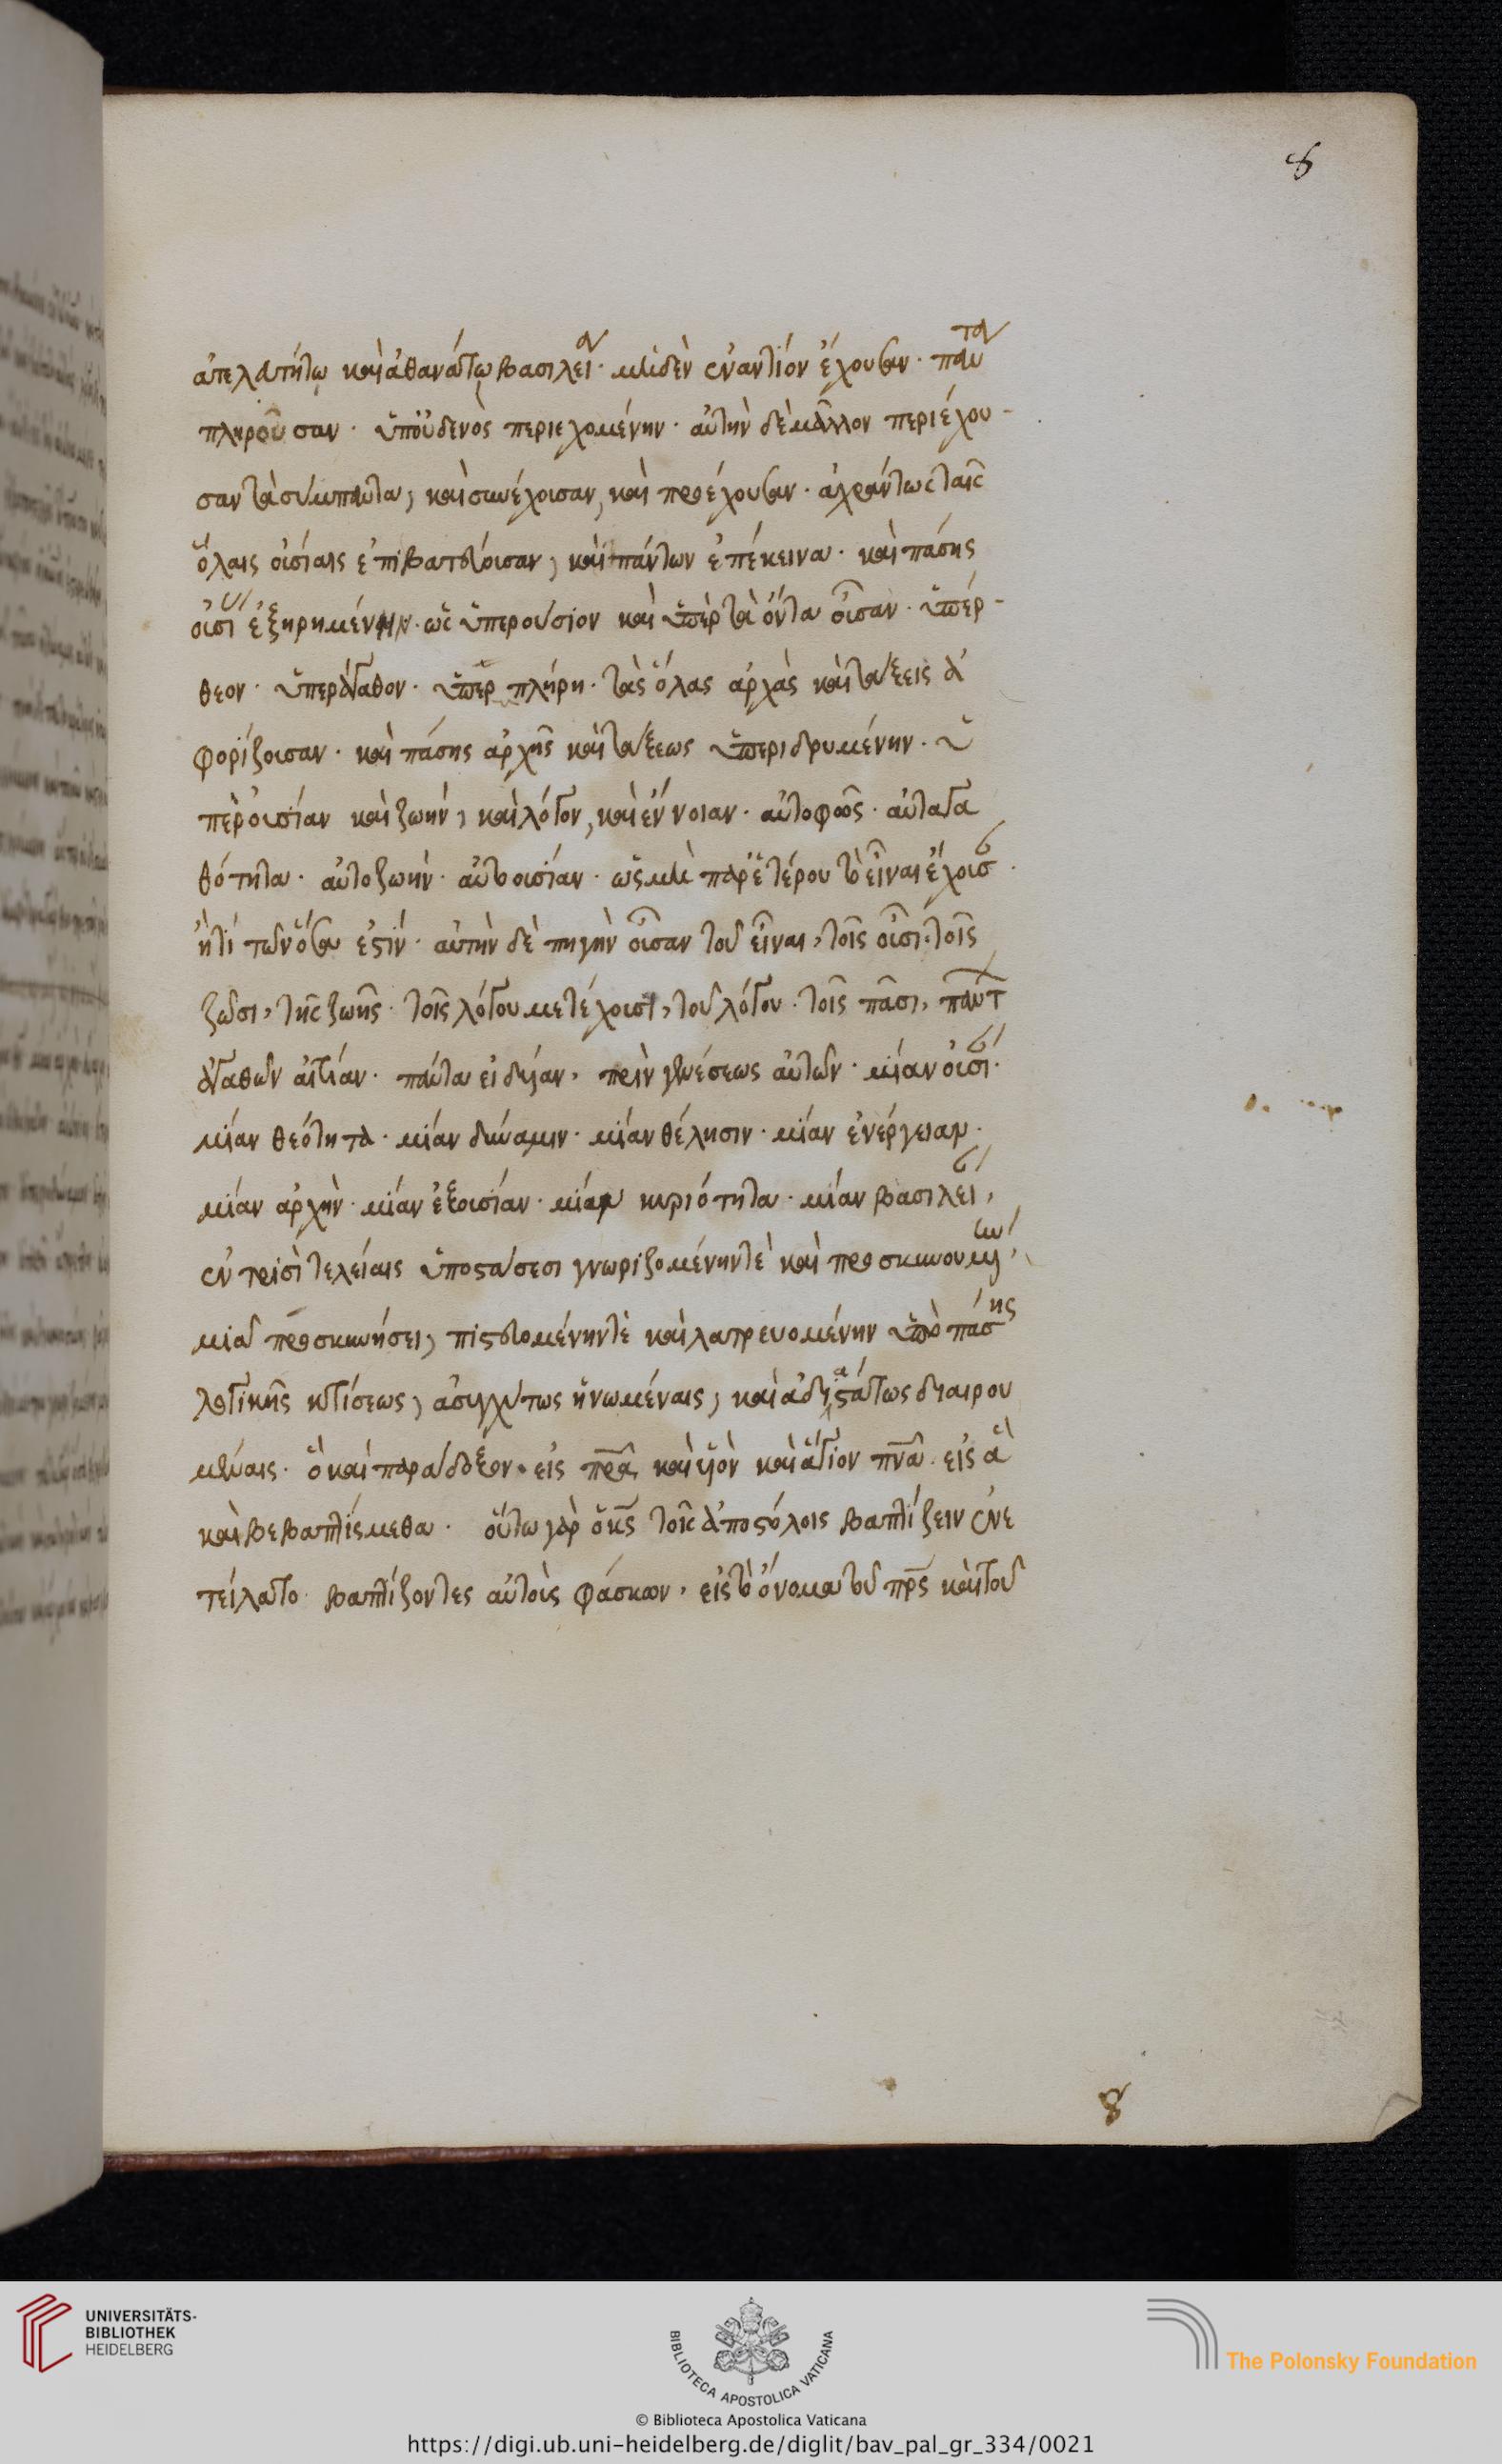 8
ἀπεράντω καὶ ἀθανάτω βασιλείαν· μηδὲν ἐναντίον ἔχουσαν· πάντα
πληροῦσαν· ὑπ' οὐδενὸς περιεχομένην· αὐτὴν δὲ μᾶλλον περιέχου-
σαν τὰ σύμπαντα, καὶ συνέχουσαν, καὶ προέχουσαν· ἀχράντως ταῖς
ὅλαις οὐσίαις ἐπιβατεύουσαν, καὶ πάντων ἐπέκεινα· καὶ πάσης
οὐσί ἐξηρημένην· ὡς ὑπερούσιον καὶ ὑπὲρ τὰ ὄντα οὖσαν· ὑπέρ-
θεον· ὑπεράγαθον· ὑπερπλήρη· τὰς ὅλας ἀρχὰς καὶ τάξεις ἀ
φορίζουσαν· καὶ πάσης ἀρχῆς καὶ τάξεως ὑπεριδρυμένην· ὑ
πὲρ οὐσίαν καὶ ζωήν, καὶ λόγον, καὶ ἔννοιαν· αὐτοφῶς· αὐταγα
θότητα· αὐτοζωήν· αὐτοουσίαν· ὡς μὴ παρ' ἑτέρου τὸ εἶναι ἔχουσαν·
ἤ τι τῶν ὅσα ἐστίν· αὐτὴν δὲ πηγὴν οὖσαν τοῦ εἶναι, τοῖς οὖσι· τοῖς
ζῶσι, τῆς ζωῆς· τοῖς λόγου μετέχουσι, τοῦ λόγου· τοῖς πᾶσι, πάντ
ἀγαθῶν αἰτίαν· πάντα εἰδυῖαν, πρὶν γενέσεως αὐτῶν· μίαν οὐσίαν·
μίαν θεότητα· μίαν δύναμιν· μίαν θέλησιν· μίαν ἐνέργειαν·
μίαν ἀρχὴν· μίαν ἐξουσίαν· μίαν κυριότητα· μίαν βασιλείαν,
ἐν τρισὶ τελείαις ὑποστάσεσι γνωριζομένην τὲ καὶ προσκυνουμένην,
μιᾶ προσκυνήσει, πιστευομένην τὲ καὶ λατρευομένην ὑπὸ πάσης
λογικῆς κτίσεως, ἀσυγχύτως ἡνωμέναις, καὶ ἀδιαστάτως διαιρου
μέναις· ὃ καὶ παράδοξον· εἰς πρα καὶ υἱὸν καὶ ἅγιον πνα· εἰς ἃ
καὶ βεβαπτίσμεθα· οὕτω γὰρ ὁ κς τοῖς ἀποστόλοις βαπτίζειν ἐνε
τείλατο· βαπτίζοντες αὐτοὺς φάσκων, εἰς τὸ ὄνομα τοῦ πρς καὶ τοῦ
8
UNIVERSITÄTS-
BIBLIOTHEK
HEIDELBERG
BIBLIOTECA APOSTOLICA VATICANA
The Polonsky Foundation
© Biblioteca Apostolica Vaticana
https://digi.ub.uni-heidelberg.de/diglit/bav_pal_gr_334/0021